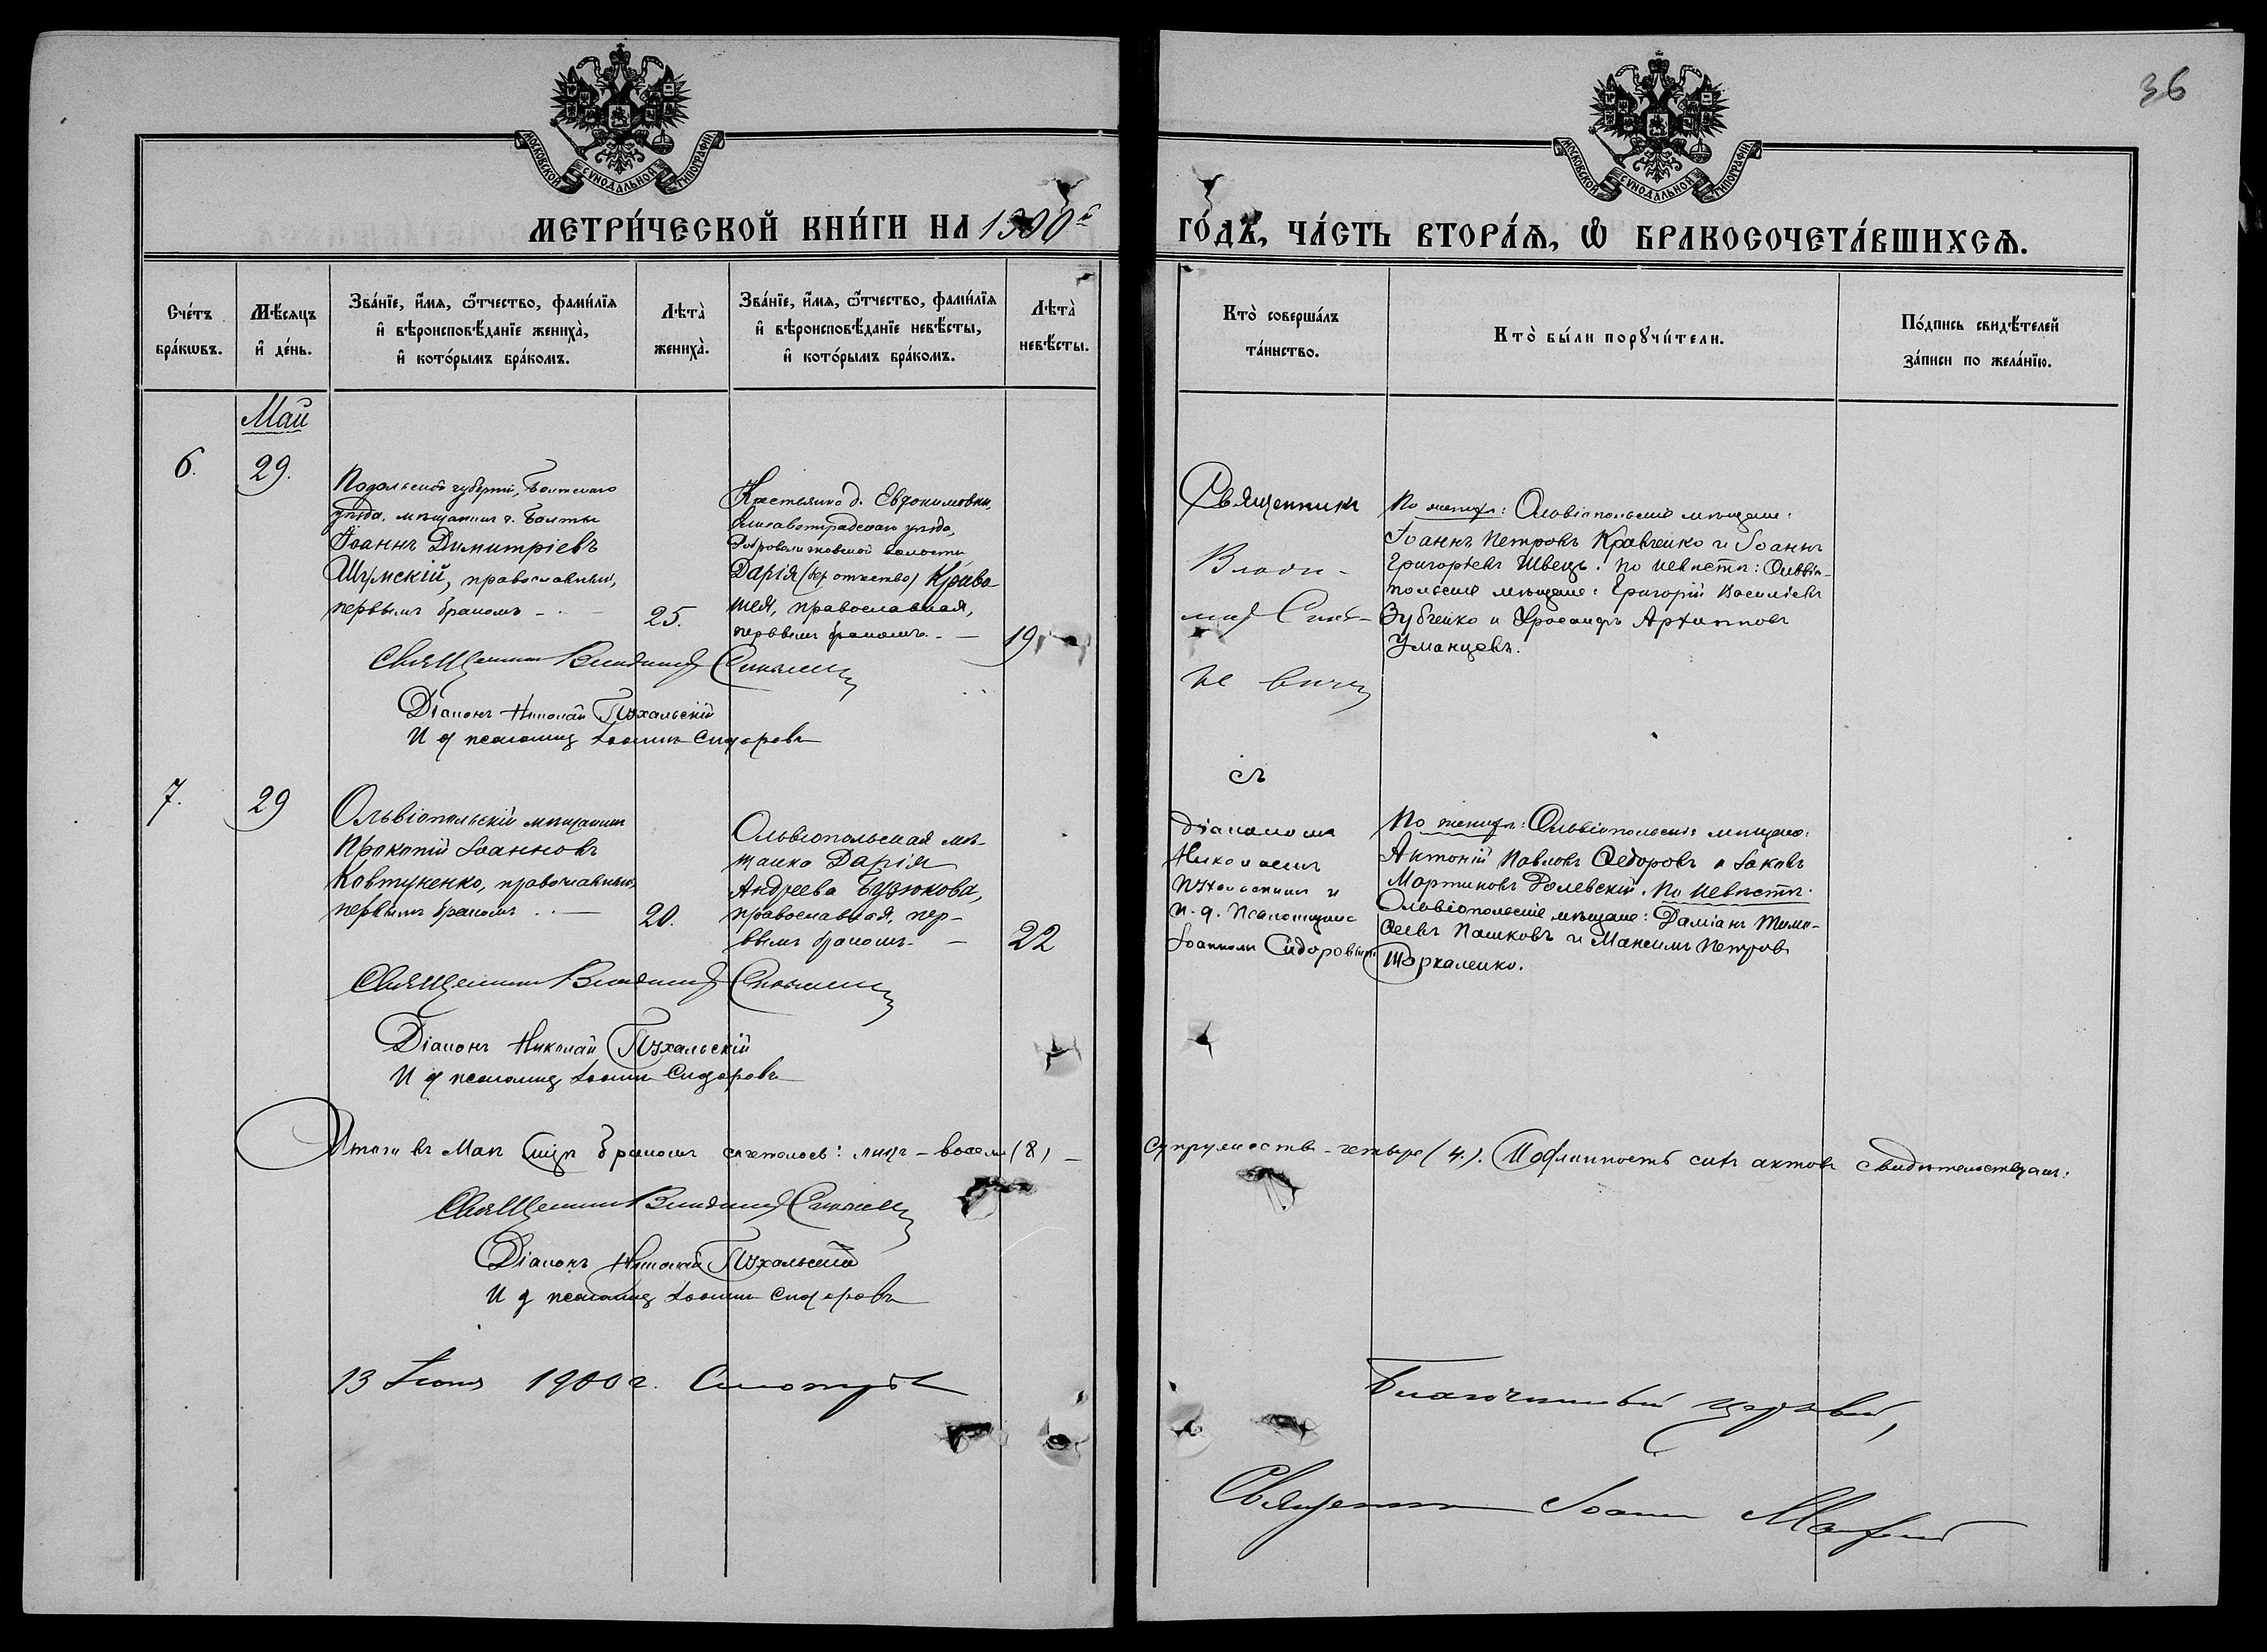 36
МОСКОВСКОЙ СУНОДАЛЬНОЙ ТИПОГРАФІИ
МОСКОВСКОЙ СУНОДАЛЬНОЙ ТИПОГРАФІИ
МЕТРИ́ЧЕСКОЙ КНИ́ГИ НА 1900й ГО́ДЪ, ЧА́СТЬ ВТОРА́Ѧ, Ѽ БРАКОСОЧЕТА́ВШИХСѦ.
Сче́тъ
бра́кѡвъ.
Мѣ́сяцъ
и҆ де́нь.
Зва́нїе, и҆́мя, ѻ҆́тчество, фами́лїя
и҆ вѣроисповѣ́данїе жениха̀,
и҆ кото́рымъ бра́комъ.
Лѣта̀
жениха̀.
Зва́нїе, и҆́мя, ѻ҆́тчество, фами́лїя
и҆ вѣроисповѣ́данїе невѣ́сты,
и҆ кото́рымъ бра́комъ.
Лѣта̀
невѣ́сты.
Кто̀ соверша́лъ
та́инство.
Кто̀ бы́ли порꙋчи́тели.
По́дпись свидѣ́телей
за́писи по жела́нїю.
Май
6.
29.
Подольской губерніи, Балтскаго
уѣзда, мѣщанинъ г. Балты
Іоаннъ Димитріевъ
Шумскій, православный,
первымъ бракомъ -
25.
Крестьянка д. Евдокимовки,
Елисаветградскаго уѣзда,
волости
Дарія (без отчества) Крива
шея, православная,
первымъ бракомъ -
19
Священникъ
Влади-
миръ Синь-
ке вичъ
По женихѣ: Ольвіопольскіе мѣщане:
Іоаннъ Петровъ Кравченко и Іоаннъ
Григорьевъ Швецъ. По невѣстѣ: Ольвіо-
польскіе мѣщане: Григорій Василіевъ
Зубченко и Архиппов
Уманцевъ.
Священникъ Владиміръ
Діаконъ Николай Пухальскій
И д псаломщ Іоаннъ Сидоровъ
съ
7.
29
Ольвіопольскій мѣщанинъ
Прокопій Іоанновъ
Ковтуненко, православный,
первымъ бракомъ -
20.
Ольвіопольская мѣ-
щанка Дарія
Андреева Бузюкова,
православная, пер-
вымъ бракомъ -
22
діакономъ
Николаемъ
Пухальскимъ и
и. д. псаломщика
Іоанномъ Сидоровымъ
По женихѣ: Ольвіопольскіе мѣщане:
Антоній Павловъ Ѳедоровъ и Іаковъ
Мартиновъ Ролевскій. По невѣстѣ:
Ольвіопольскіе мѣщане: Даміанъ Тимо-
ѳеевъ Пашковъ и Максимъ Петровъ
Таркаленко.
Священникъ Владиміръ
Діаконъ Николай Пухальскій
И д псаломщ Іоаннъ Сидоровъ
Итого въ Маѣ бракомъ сочеталось: лицъ - восемь (8) - супружествъ - четыре (4.). Подлинность сихъ актовъ свидѣтельствуемъ:
Священникъ Владиміръ
Діаконъ Николай Пухальскій
И д псаломщ Іоаннъ Сидоровъ
13 Іюня 1900 г. Смотрѣлъ Благочинный церквей,
Священникъ Іоаннъ